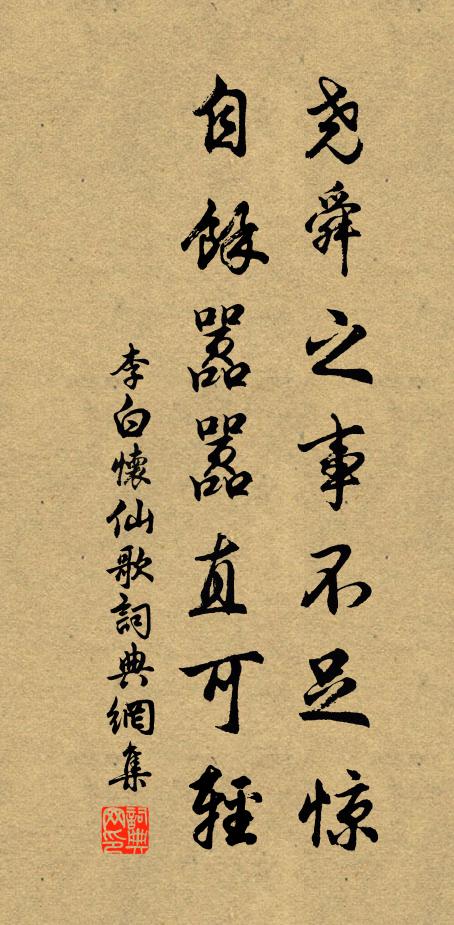 尧舜之事不足惊
自馀嚣嚣直可轻
李白懷仙歌詞典網集
詞典網印